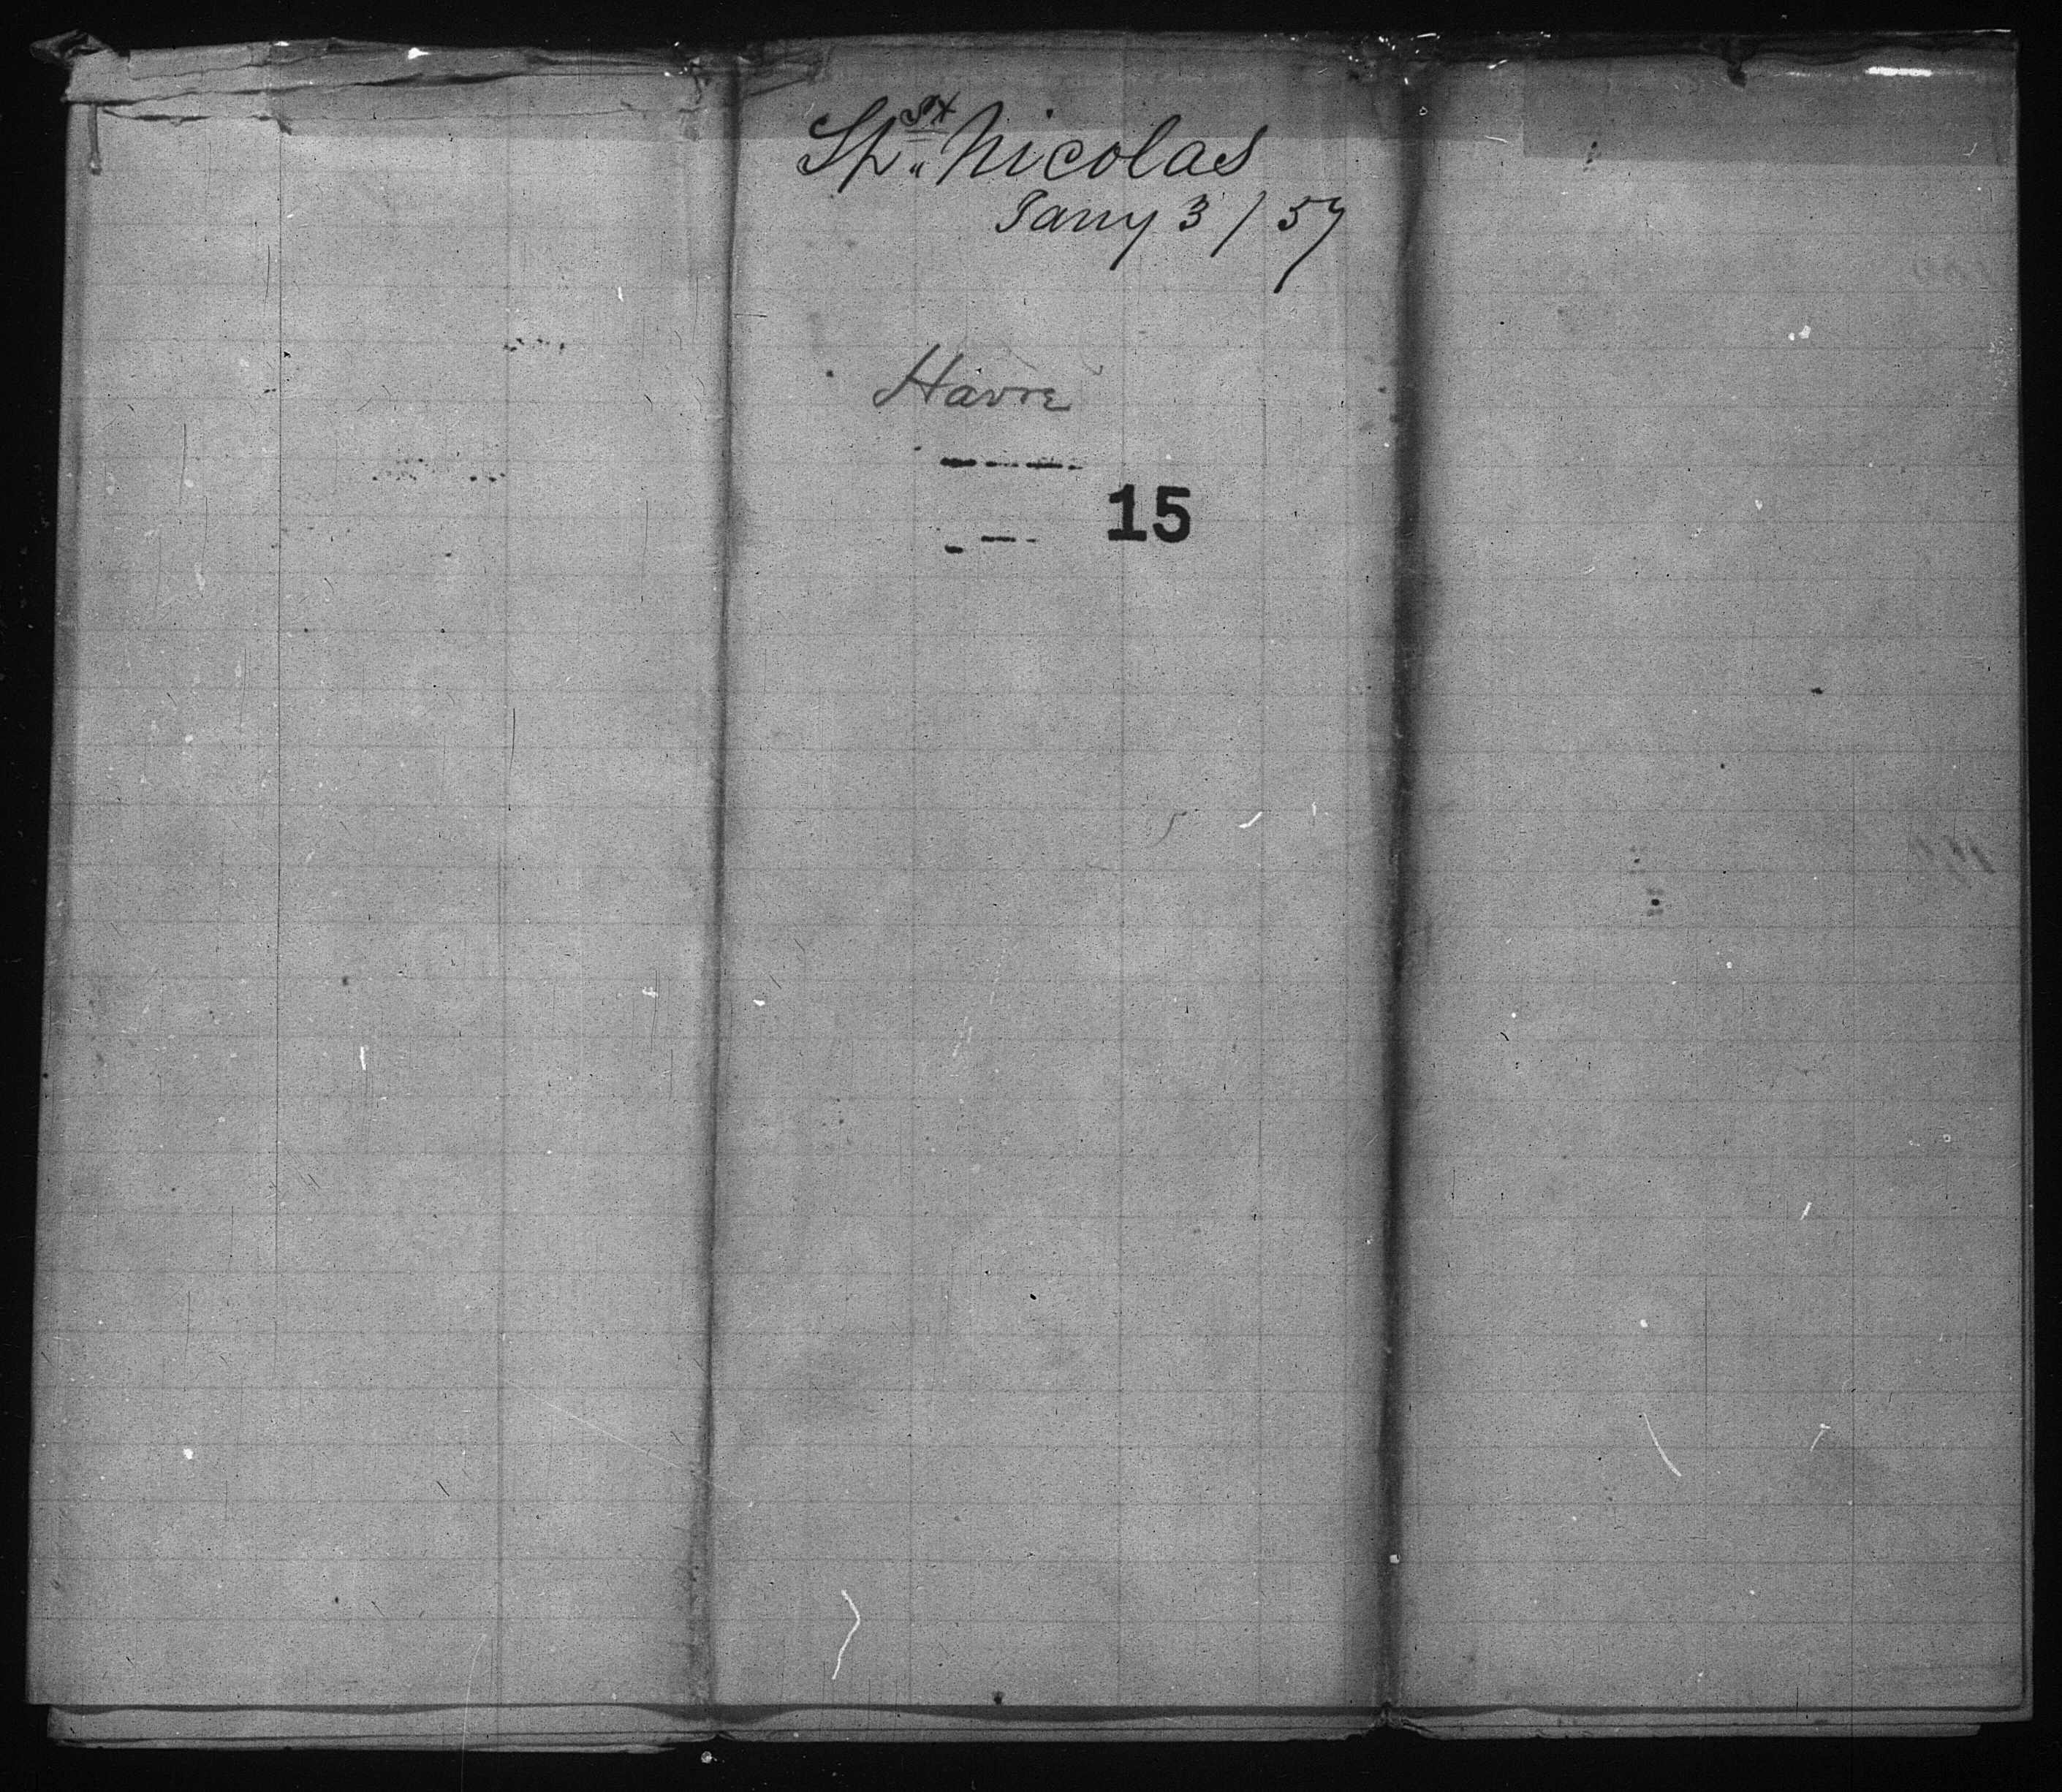 Sp. St. Nicolas
Jany 3/57
Havre
15